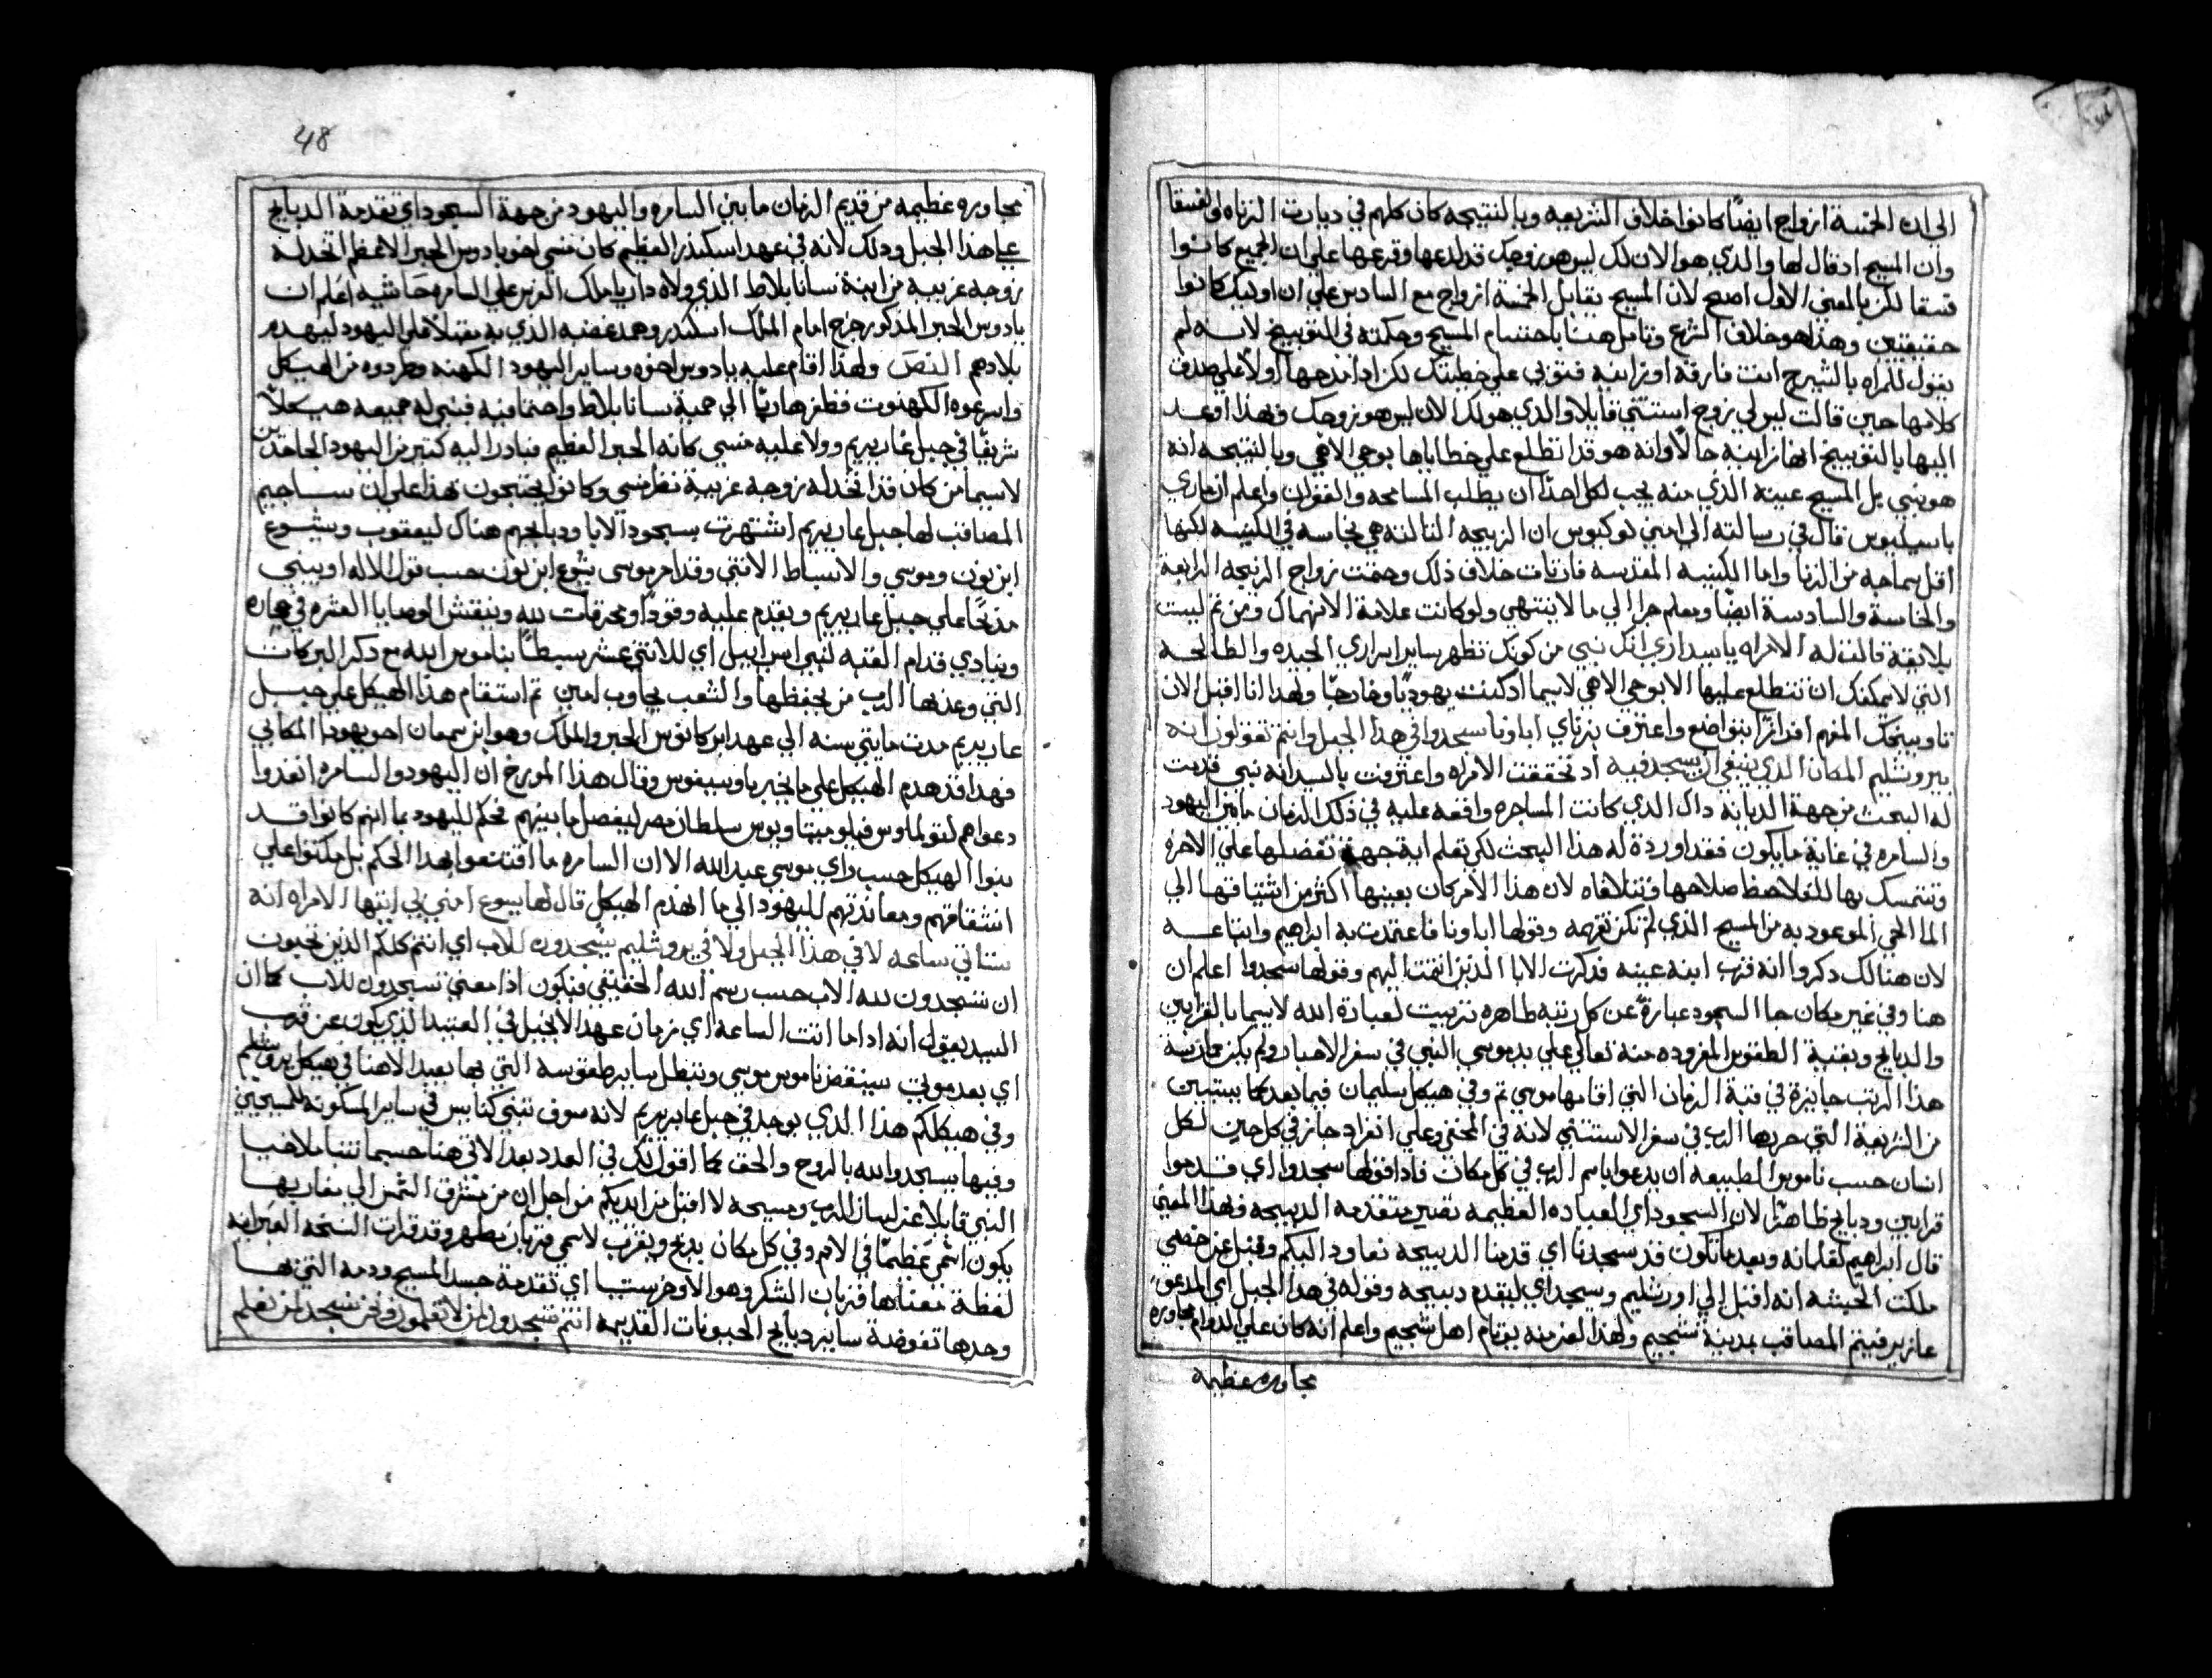 الي ان الخمسة ازواج ايضًا كانوا خلاف الشريعه وبالنتيجه كان كلهم في ديارت الزناه والفسقا
وان المسيح اد قال لها والدي هو الان لك ليس هو زوجك قد لدعها وقرعها علي ان الجميع كانوا
فسقا لكن بالمعني الاول اصح لان المسيح يقابل الخمسة ازواج مع السادس علي ان اوليك كانوا
حقيقيين وهذا هو خلاف الشرع وتامل هنا باحتشام المسيح وحكمته في التوبيخ لانه لم
يقول للمراه بالشرح انت فارقة او زانيه فتوبي علي خطيتك لكن اذ امدحها اولاً علي صدق
كلامها حين قالت ليس لي زوج استثني قايلا والدي هو لك الان ليس هو زوجك فهذا اوعد
اليها بالتوبيخ انها زانيه حالاً وانه هو قد اطلع علي خطاياها بوحي الاهي وبالنتيجه انه
هو نبي بل المسيح عينه الذي منه يجب لكل احدًا ان يطلب المسامحه والغفران واعلم ان ماري
باسيليوس قال في رسالته الي امفيلوكيوس ان الزيجه التالته هي نجاسه في الكنيسه لكنها
اقل سماجه من الزنا واما الكنيسه المقدسه فاريات خلاف ذلك وحققت زواج الزيجه الرابعة
والخامسة والسادسة ايضًا وهلم جرا الي ما لا ينتهي ولو كانت علامة الانهمال ومن تم ليست
بلايقة قالت له الامراه يا سيد اري انك نبي من كونك تظهر ساير اسراري الجيده والطالحه
التي لا يمكنك ان تتطلع عليها الا بوحي الاهي لاسيما اد كنت يهوديًا وخارجيًا ولهدا انا اقبل الان
توبيخك المفهم اقرارًا بتواضع واعترف بزناي اباونا سجدوا في هذا الجبل وانتم تقولون انه
بيروشليم المكان الذي ينبغي ان يسجد فيه اد تحققت الامراه واعترفت بالسيد انه نبي قدمت
له البحث من جهة الديانه دال الدي كانت المشاجره واقعه عليه في ذلك الزمان مابين اليهود
والسامره في غاية مايكون فقد اوردة له هذا البحث لكي تعلم اية جهة تفضلها علي الاخره
وتتمسك بها لتلاحظ صلاحها وتتلافاه لان هذا الامر كان يعنيها اكثر من اشتياقها الي
الما الحي الموعود به من المسيح الذي لم تكن تفهمه وقولها اباونا فاعتمدت به ابراهيم واتباعه
لان هنالك دكروا انه قرب ابنه عينه فدكرت الابا الدين انتمت اليهم وقولها سجدوا اعلم ان
هنا وفي غير مكان جا السجود عبارةً عن كل رتبه طاهره ترتبت لعبادة الله لاسيما بالقرابين
والدبايح وبقية الطقوس المفروده منه تعالي علي يد موسي النبي في سفر الاحبار ولم يكن ممارسة
هذا الرتب جايزة في قبة الزمان التي اقامها موسي تم وفي هيكل سليمان فيما بعد كما يستبين
من الشريعة التي حررها الرب في سفر الاستثني لانه في المختفي وعلي انفراد جايز في كل حين لكل
انسان حسب ناموس الطبيعه ان يدعوا باسم الرب في كل مكان فادا قولها سجدوا اي قدموا
قرابين ودبايح ظاهرًا لان السجود اي العباده العظيمه تصير بتقدمه الدبيحه فهدا المعني
قال ابراهيم لغلمانه وبعد ما نكون قد سجدنا اي قدمنا الدبيحه نعاود اليكم وقيل عن خصي
ملكت الحبشه انه اقبل الي اورشليم وسجد اي ليقدم دبيحه وقوله في هذا الجبل اي المدعو
عاريرفيتم المصاقب بمدينة شجيم ولهذا امر منه يقام اهل شجيم واعلم انه كان علي الدوام مجاوره
مجاوره عظيمه
48
مجاوره عظيمه من قديم الزمان مابين السامره واليهود من جهة السجود اي تقدمة الدبايح
علي هذا الجبل ودلك لانه في عهد اسكندر العظيم كان منسي اخو يادوس الحبر الاعظم اتخد له
زوجه غريبه من ابنة سانابلاط الذي ولاه داريا ملك الفرس علي السامره حاشيه اعلم ان
يادوس الحبر المذكور خرج امام الملك اسكندر وهمد غضبه الذي به مقبلاً علي اليهود ليهدم
بلادهم النص ولهذا اقام عليه يادوس اخوه وساير اليهود الكهنه وطردوه من الهيكل
وابرعوه الكهنوت فظفر هاربًا الي حميه سانابلاط واحتما فيه فبني له حميه هيكلاً
شريفًا في جبل عاريريم وولا عليه منسي كانه الحبر العظيم فبادر اليه كتير من اليهود الجاحدين
لاسيما من كان قد اتخد له زوجه غريبة نظر منسي وكانوا يحتجون هذا علي ان ساجيم
المصاقب لها جبل عاريريم اشتهرت بسجود الابا ودبايحهم هناك ليعقوب ويشوع
ابن نون وموسي والاسباط الاتني وقد امر موسي يشوع ابن نون حسب قول الاله او يبني
مدبحًا علي جبل عاريريم ويقدم عليه وقودًا ومحرقات لله وينقش الوصايا العشره في حجاره
وينادي قدام القبه لبني اسراييل اي للاتني عشر سبطًا بناموس الله مع دكر البركات
التي وعد بها الرب من يحفظها والشعب يجاوب امين تم استقام هذا الهيكل علي جبل
عاريريم مدت مايتي سنه الي عهد ايركانوس الحبر والملك وهو ابن سمعان اخو يهودا المكابي
فهدا قد هدم الهيكل علي ما يخبر ياوسيفوس وقال هذا المورخ ان اليهود والسامره انفدوا
دعواهم لتولماوس فيلوميتاويوس سلطان مصر ليفصل ما بينهم فحكم لليهود بما انهم كانوا قد
بنوا الهيكل حسب راي موسي عبد الله الا ان السامره ما اقتنعوا بهدا الحكم بل مكتوا علي
انشقاقهم ومعاندتهم لليهود الي ما انهدم الهيكل قال لها يسوع امني بي ايتها الامراه انه
ستاتي ساعه لا في هذا الجبل ولا في يروشليم تسجدون للاب اي انتم كلكم الذين تحبون
ان تسجدون لله الاب حسب رسم الله الحقيقي فيكون ادا معني تسجدون للاب كما ان
السيد يقول انه ادا ما اتت الساعه اي زمان عهد الانجيل في العتيد الذي يكون عن قرب
اي بعد موتي سينقض ناموس موسي وتبطل ساير طقوسه التي بها يعبد الاهنا في هيكل يروشليم
وفي هيكلكم هذا الدي يوجد في جبل عاريريم لانه سوف تبني كنايس في ساير المسكونه للمسيحيين
وفيها يسجدوا لله بالروح والحق كما اقول لك في العدد بعد الاتي هنا حسبما تنبا ملاخيا
النبي قايلا عن لسان الرب ومسيحه لا اقبل من ايديكم من اجل ان من مشرق الشمس الي مغاربها
يكون اسمي عظيمًا في الامم وفي كل مكان يدبح ويقرب لاسمي قربان مطهر وقد قرات النسخه العبرانيه
لفظة معناها قربان الشكر وهو الاوخرستيا اي تقدمة جسد المسيح ودمه التي بها
وحدها تفوضة ساير دبايح الحيونات القديمه انتم تسجدون لمن لا تعلمون ونحن نسجد لمن نعلم